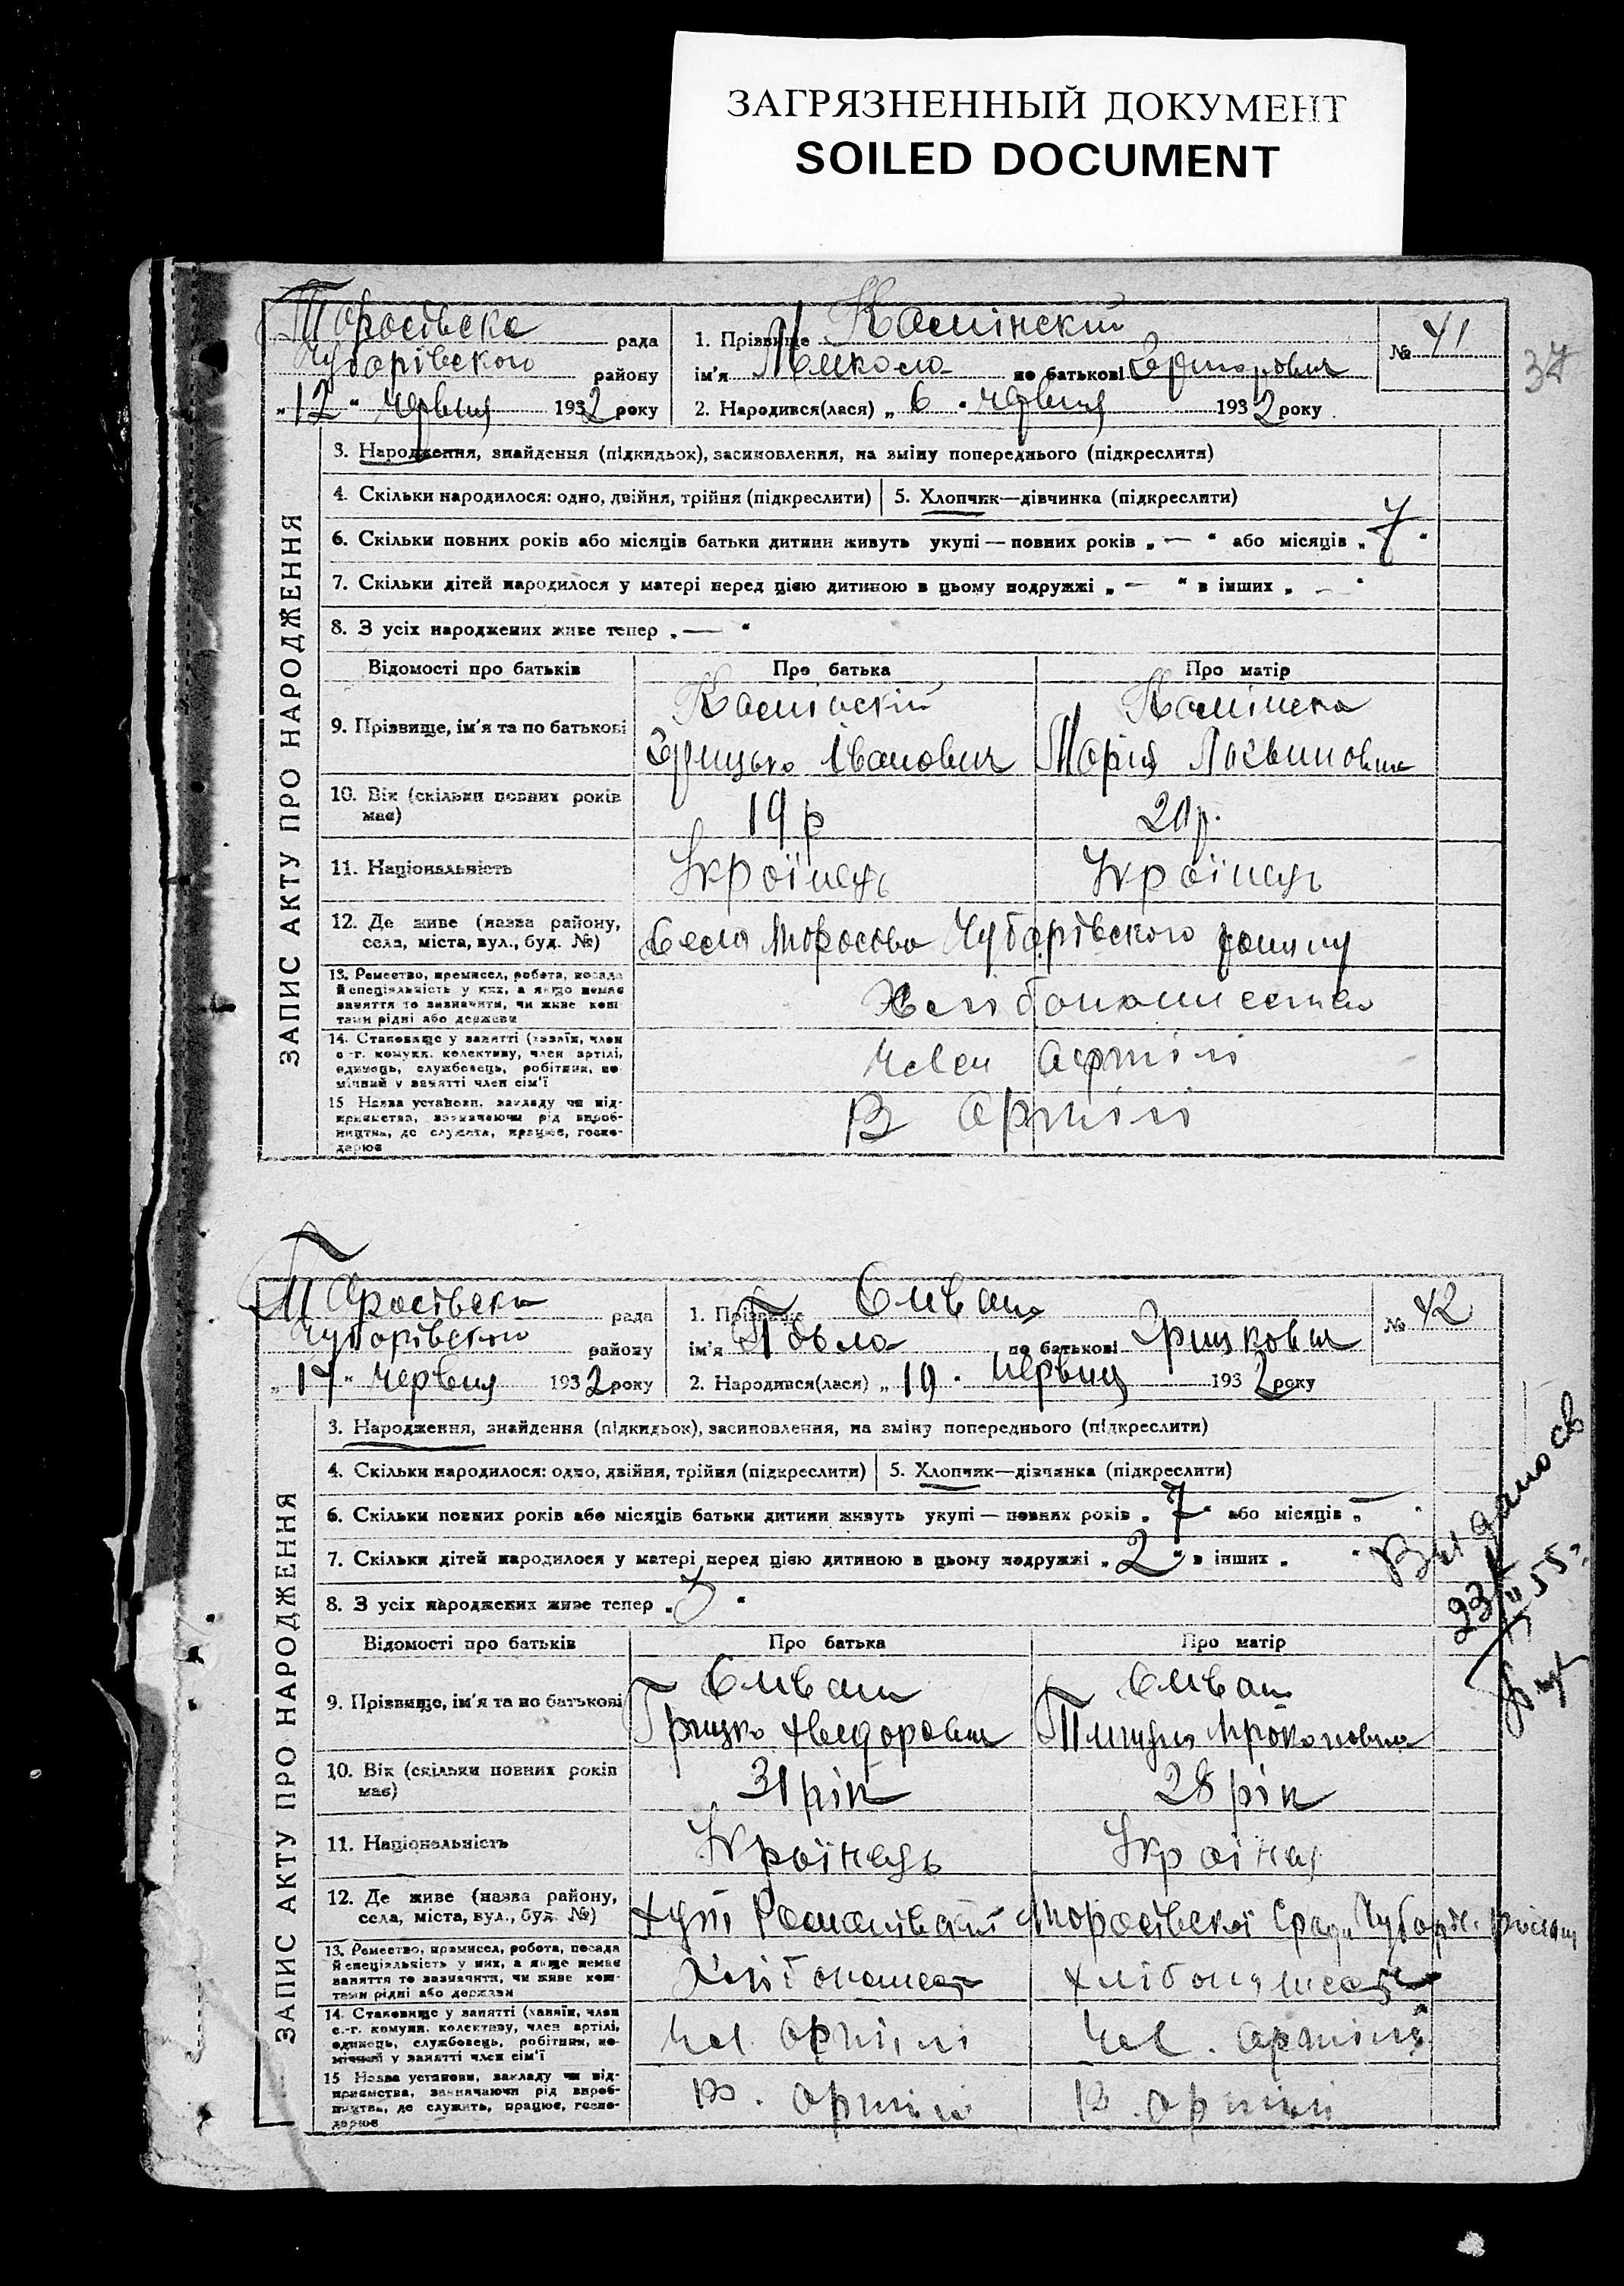 ЗАГРЯЗНЕННЫЙ ДОКУМЕНТ
SOILED DOCUMENT
37
Тарасівська рада
Чубарівського району
„12“ червня 1932 року
1. Прізвище Камінский
ім'я Микола по батькові Григорович
2. Народився(лася) „6“ червня 1932 року
№ 41
ЗАПИС АКТУ ПРО НАРОДЖЕННЯ
3. Народження, знайдення (підкидьок), засиновлення, на зміну попереднього (підкреслити)
4. Скільки народилося: одно, двійня, трійня (підкреслити) 5. Хлопчик—дівчинка (підкреслити)
6. Скільки повних років або місяців батьки дитини живуть укупі — повних років „—“ або місяців „7“
7. Скільки дітей народилося у матері перед цією дитиною в цьому подружжі „—“ в інших „—“
8. З усіх народжених живе тепер „—“
Відомості про батьків Про батька Про матір
9. Прізвище, ім'я та по батькові
Камінский Камінска
Грицько Іванович Марія
10. Вік (скільки повних років має)
19 р 20 р.
11. Національність
Українець Українець
12. Де живе (назва району, села, міста, вул., буд. №)
Село Тарасовка Чубарівського району
13. Ремество, промисел, робота, посада
й спеціяльність у них, а якщо немає
заняття то зазначити, чи живе кош-
тами рідні або держави
14. Становище у занятті (хазяїн, член
с.-г. комуни, колективу, член артілі,
одинець, службовець, робітник, по-
мічний у занятті член сім'ї
Член артілі
15 Назва установи, закладу чи під-
приємства, зазначаючи рід вироб-
ництва, де служить, працює, госпо-
дарює
В артілі
Тарасівська рада
Чубарівського району
„17“ червня 1932 року
1. Прізвище Сиваш
ім'я Павло по батькові Грицкович
2. Народився(лася) „10“ червня 1932 року
№ 42
ЗАПИС АКТУ ПРО НАРОДЖЕННЯ
3. Народження, знайдення (підкидьок), засиновлення, на зміну попереднього (підкреслити)
4. Скільки народилося: одно, двійня, трійня (підкреслити) 5. Хлопчик—дівчинка (підкреслити)
6. Скільки повних років або місяців батьки дитини живуть укупі — повних років „7“ або місяців „—“
7. Скільки дітей народилося у матері перед цією дитиною в цьому подружжі „2“ в інших „ “
8. З усіх народжених живе тепер „3“
Выдано св
23/II 55 г.
Відомості про батьків Про батька Про матір
9. Прізвище, ім'я та по батькові
Сиваш Сиваш
Грицко Хведорович Прокоповна
10. Вік (скільки повних років має)
31 рік 28 рік
11. Національність
Українець Українец
12. Де живе (назва району, села, міста, вул., буд. №)
хут Романівский Тарасівскої Чубарів. району
13. Ремество, промисел, робота, посада
й спеціяльність у них, а якщо немає
заняття то зазначити, чи живе кош-
тами рідні або держави
14. Становище у занятті (хазяїн, член
с.-г. комуни, колективу, член артілі,
одинець, службовець, робітник, по-
мічний у занятті член сім'ї
Чл. артілі Чл. артілі
15 Назва установи, закладу чи під-
приємства, зазначаючи рід вироб-
ництва, де служить, працює, госпо-
дарює
В. артілі В. артілі